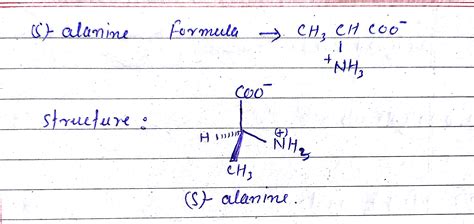 (S)- alanine Formula → CH₃ CH COO⁻
⁺NH₃
Structure :
COO⁻
H
(+)
NH₃
CH₃
(S)- alanine.